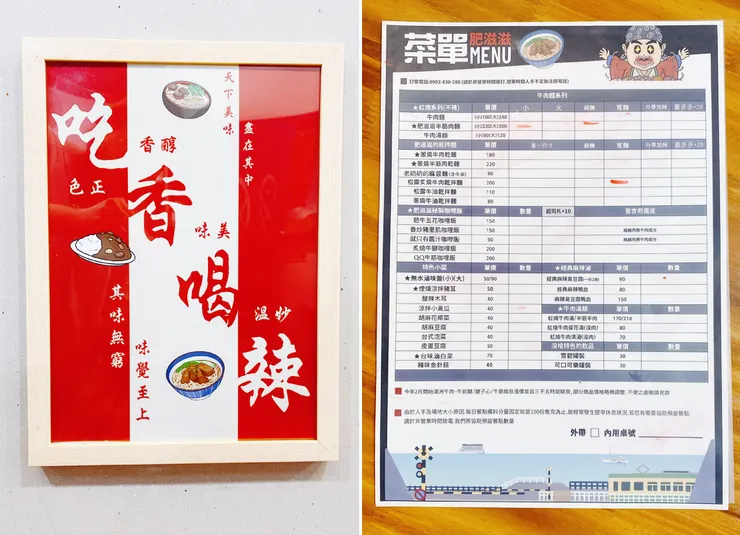 天下美味
盡在其中
吃香喝辣
香醇
色正
味美
溫妙
其味無窮
味覺至上
菜單 肥滋滋
MENU
訂餐電話:0903-830-288
牛肉麵系列
★紅燒系列(不辣) 單價 小 大 細麵 寬麵 外帶加辣 蔥多多+20
牛肉麵 (小)180(大)240
★肥滋滋半筋肉麵 (小)220(大)300
牛肉湯麵 (小)80(大)120
肥滋滋的乾拌麵 單價 單一尺寸 細麵 寬麵 外帶加辣 蔥多多+20
★蔥燒牛肉乾拌麵 180
★蔥燒半筋肉乾拌麵 220
老奶奶的麻醬麵(含牛油) 80
松露炙燒牛肉乾拌麵 200
松露牛油乾拌麵 110
蔥燒牛油乾拌麵 80
★肥滋滋秘製咖哩飯 單價 數量 起司片+10 皆含煎蛋皮
肥牛五花咖哩飯 150
香炒豬里肌咖哩飯 150
就只有醬汁咖哩飯 90
炙燒牛腱咖哩飯 200
QQ牛筋咖哩飯 200
特色小菜 單價 數量 ★經典麻辣滷 單價 數量
★無水滷味盤(小)(大) 50/90
★煙燻涼拌豬耳 50 經典麻辣鴨血 60
酸辣木耳 40 麻辣臭豆腐鴨血 150
涼拌小黃瓜 40 ★牛肉湯類 單價 數量
胡麻花椰菜 40 紅燒牛肉湯/半筋半肉 170/210
胡麻豆腐 40 紅燒牛肉蛋花湯(沒肉) 80
台式泡菜 40 紅燒牛肉清湯(沒肉) 70
皮蛋豆腐 50 沒啥特色的飲品 單價 數量
★台味滷白菜 70 雪碧罐裝 30
辣味金針菇 40 可口可樂罐裝 30
由於人手及場地大小原因,每日餐點備料分量固定就是100份售完為止,故經常發生提早休息狀況,若您有需要協助預留餐點
請於非營業時間致電,我們將協助預留餐點數量
外帶 內用桌號